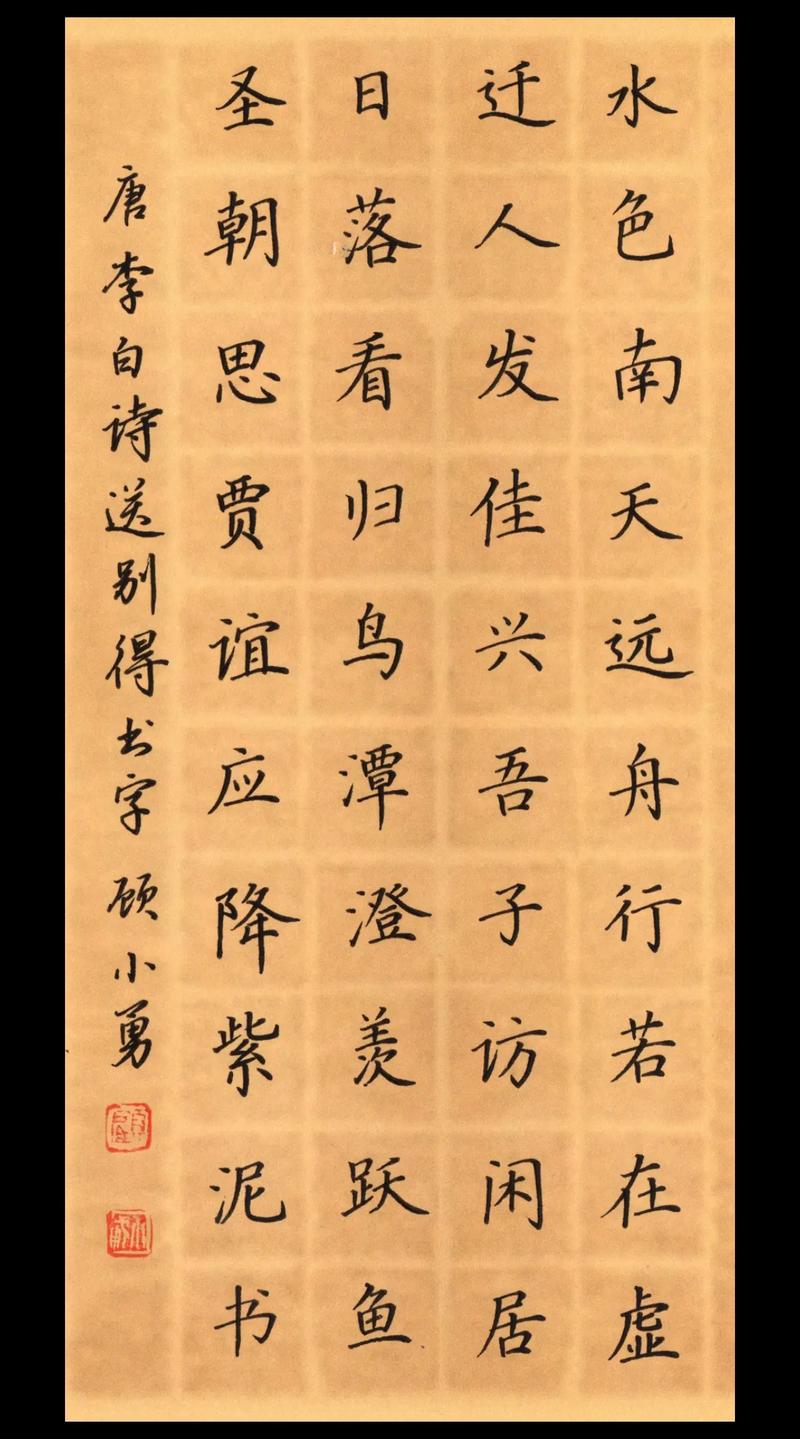 水色南天远舟行若在虚
迁人发佳兴吾子访闲居
日落看归鸟潭澄羡跃鱼
圣朝思贾谊应降紫泥书
唐李白诗送别得书字 顾小勇